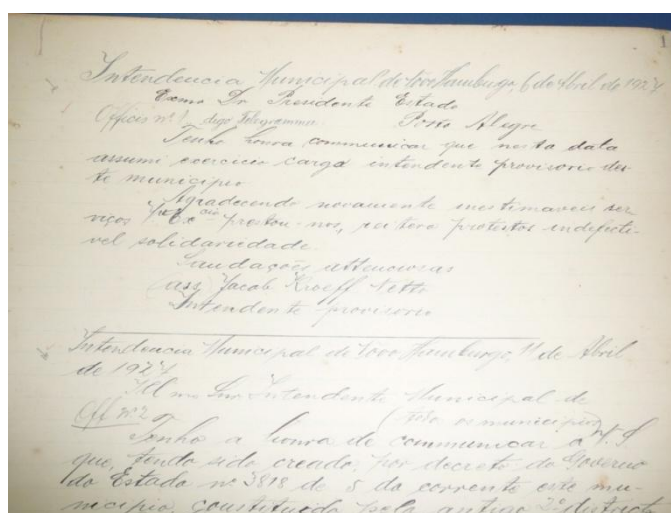 Intendencia Municipal de Novo Hamburgo, 6 de Abril de 1927
Exmo Dr. Presidente Estado
Officio nº 1 digo Telegramma Porto Alegre
Tenho honra communicar que nesta data
assumi exercicio cargo intendente provisorio des-
te municipio
Agradecendo novamente inestimaveis ser-
viços V. Excia prestou-nos, reitero protestos indefecti-
vel solidariedade.
Saudações attenciosas
(ass) Jacob Kroeff Netto
Intendente provisorio
Intendencia Municipal de Novo Hamburgo, 11 de Abril
de 1927
Illmo Snr Intendente Municipal de
Off nº 2 (todos os municipios)
Tenho a honra de communicar a V. S
que, tendo sido creado, por decreto do Governo
do Estado nº 3818 de 5 do corrente este mu-
nicipio, constituido pelo antigo 2º districto